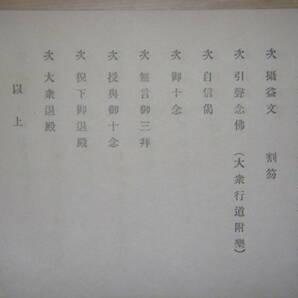 次 攝益文 割笏
次 引聲念佛 (大衆行道附樂)
次 自信偈
次 御十念
次 無言御三拜
次 授與御十念
次 猊下御退殿
次 大衆退殿
以上